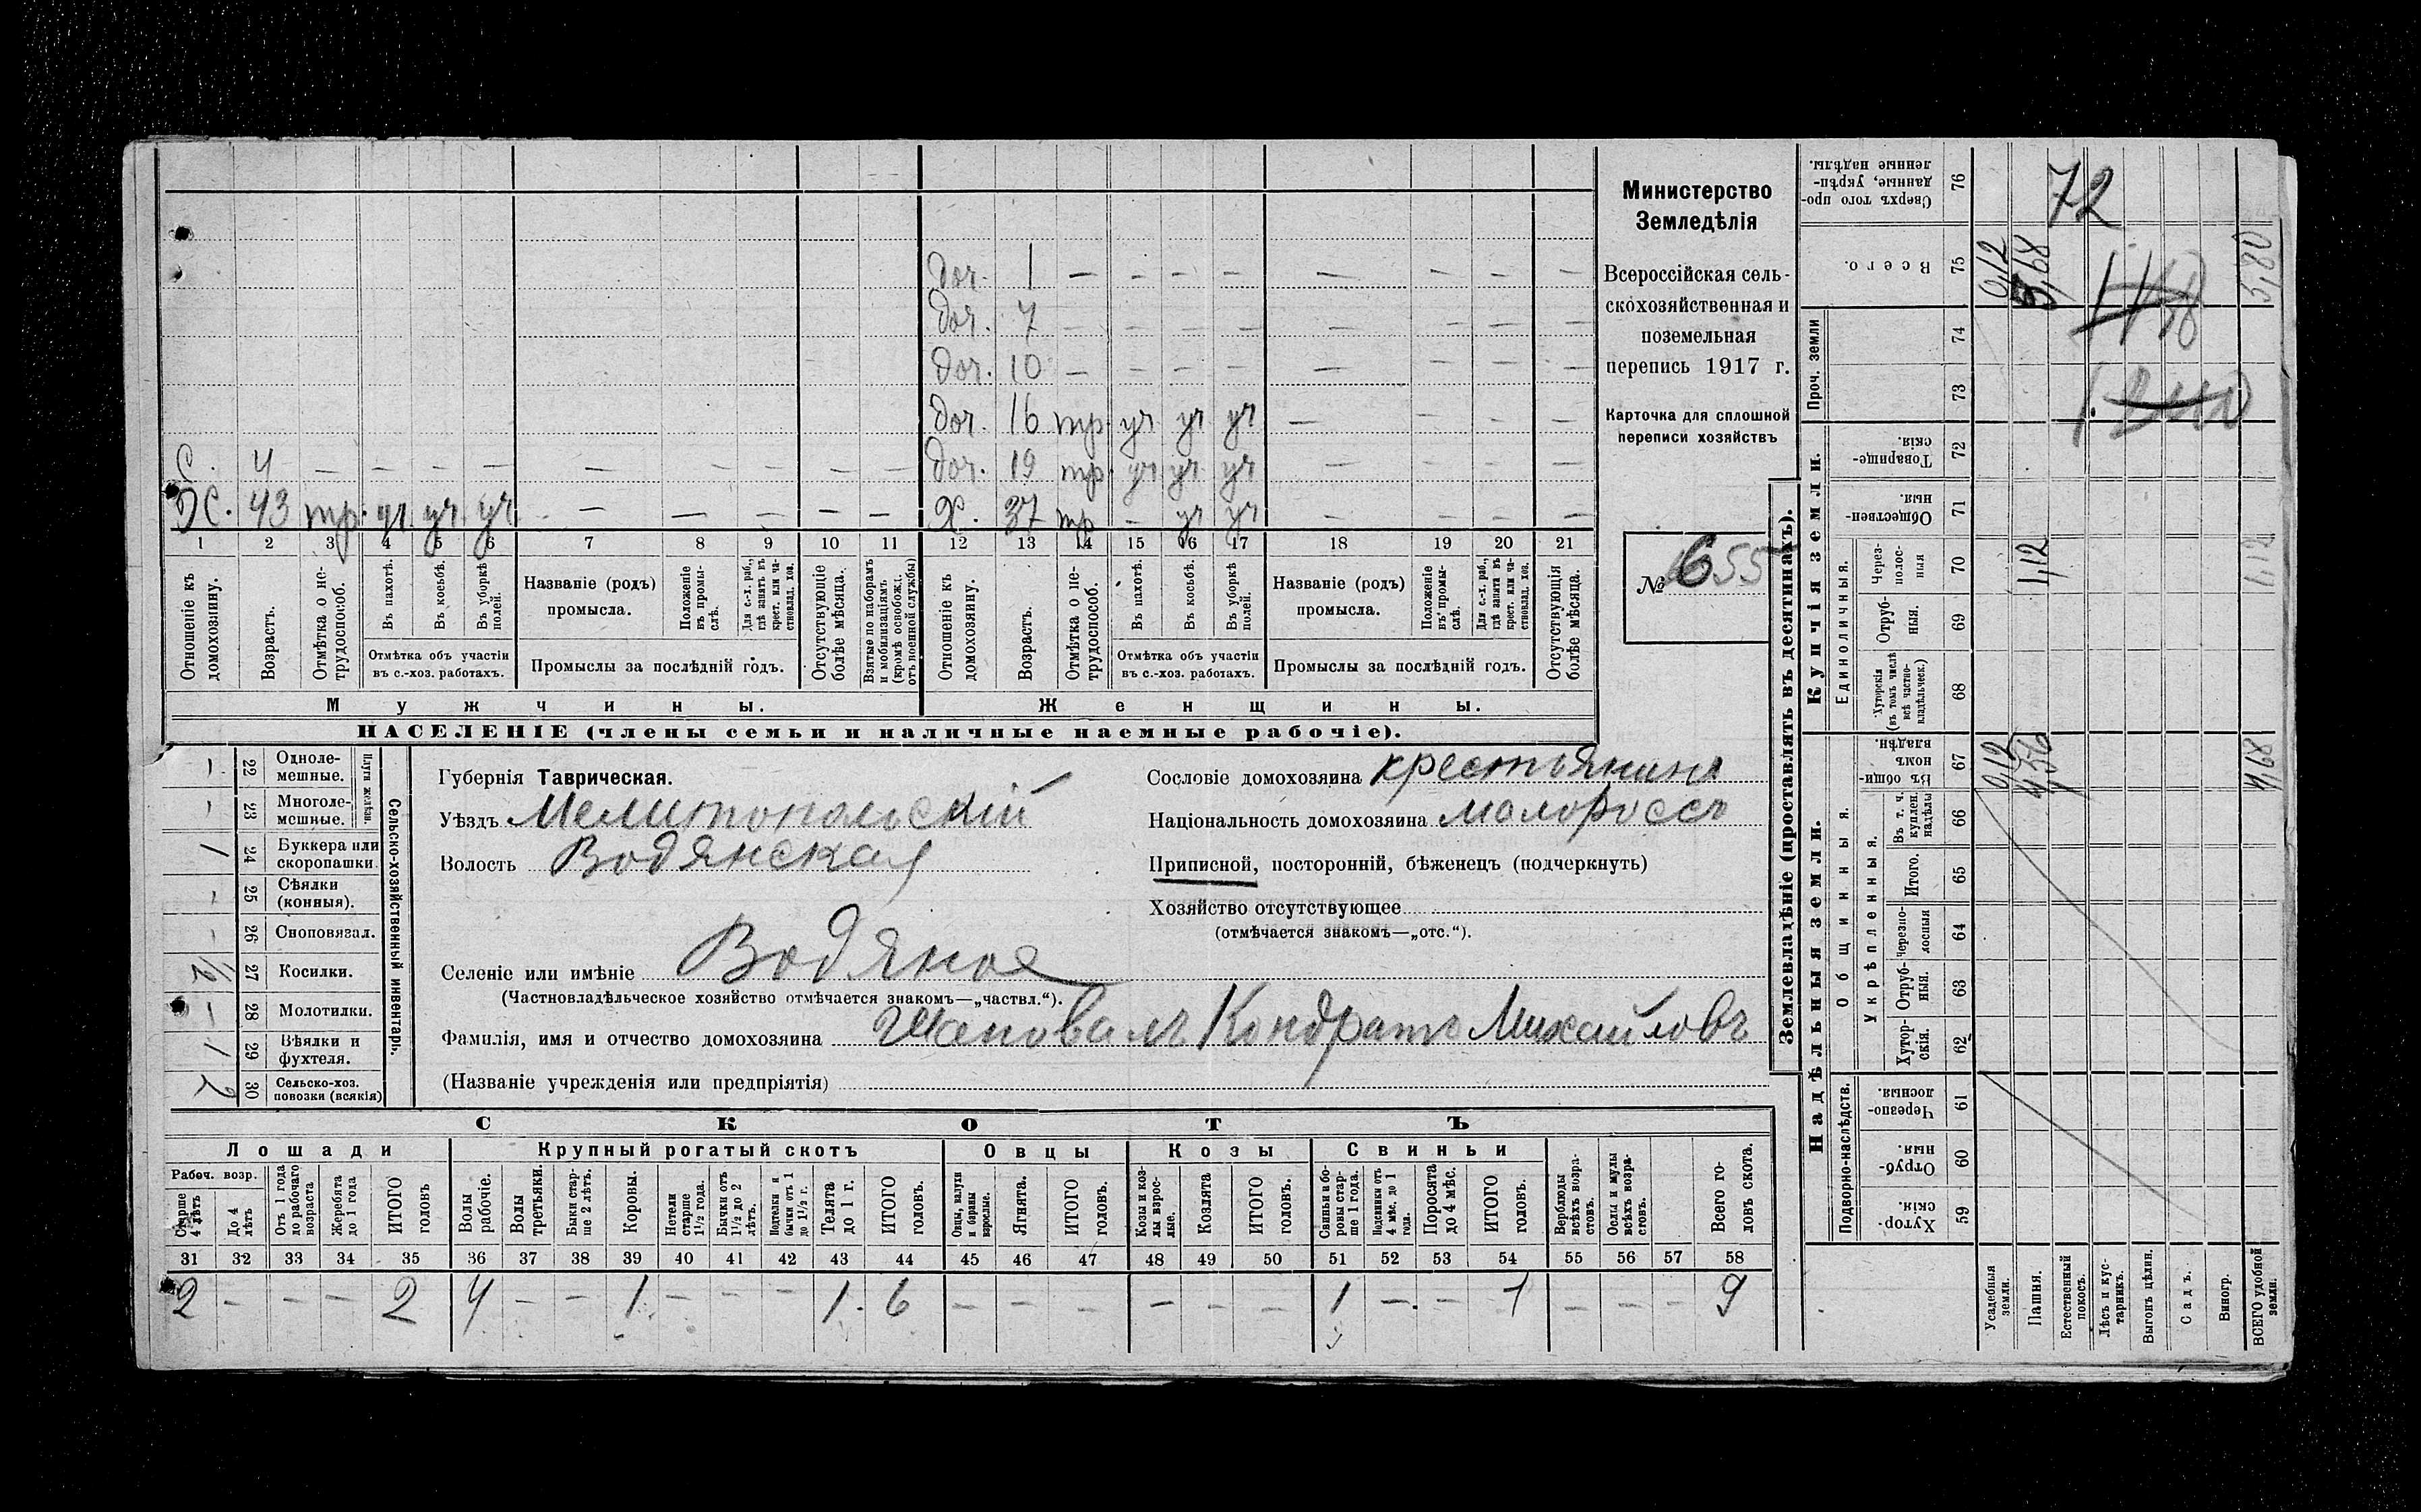 Министерство
Земледѣлія
Всероссійская сель-
скохозяйственная и
поземельная
перепись 1917 г.
Карточка для сплошной
переписи хозяйствъ
№ 655
доч. 1 — — — — — — — —
доч. 7 — — — — — — — —
доч. 10 — — — — — — — —
доч. 16 тр. уч уч уч — — — —
С. 4 — — — — — — — — — доч. 19 тр. уч уч уч — — — —
Х. 43 тр. уч. уч. уч. — — — — — Х. 37 тр — уч уч — — — —
1 2 3 4 5 6 7 8 9 10 11 12 13 14 15 16 17 18 19 20 21
Отношеніе къ домохозяину.
Возрастъ.
Отмѣтка о не-трудоспособ.
Въ пахотѣ.
Въ косьбѣ.
Въ уборкѣ полей.
Отмѣтка объ участіи въ с.-хоз. работахъ.
Названіе (родъ) промысла.
Положеніе въ промы-слѣ.
Для с.-х. раб., гдѣ занятъ въ крест. или ча-стновлад. хоз.
Промыслы за послѣдній годъ.
Отсутствующіе болѣе мѣсяца.
Взятые по наборамъ и мобилизаціямъ (кромѣ освобожд. отъ военной службы)
Отношеніе къ домохозяину.
Возрастъ.
Отмѣтка о не-трудоспособ.
Въ пахотѣ.
Въ косьбѣ.
Въ уборкѣ полей.
Отмѣтка объ участіи въ с.-хоз. работахъ.
Названіе (родъ) промысла.
Положеніе въ промы-слѣ.
Для с.-х. раб., гдѣ занята въ крест. или ча-стновлад. хоз.
Промыслы за послѣдній годъ.
Отсутствующія болѣе мѣсяца.
Мужчины. Женщины.
НАСЕЛЕНІЕ (члены семьи и наличные наемные рабочіе).
Сельско-хозяйственный инвентарь.
Плуги желѣзн.
— 22 Одноле-мешные.
— 23 Многоле-мешные.
1 24 Буккера или скоропашки.
— 25 Сѣялки (конныя).
— 26 Сноповязал.
1/2 27 Косилки.
— 28 Молотилки.
1 29 Вѣялки и фухтеля.
2 30 Сельско-хоз. повозки (всякія)
Губернія Таврическая.
Уѣздъ Мелитопольскій
Волость Водянская
Селеніе или имѣніе Водяное
(Частновладѣльческое хозяйство отмѣчается знакомъ—„частвл.“).
Фамилія, имя и отчество домохозяина Шаповалъ Кондратъ Михайловъ
(Названіе учрежденія или предпріятія)
Сословіе домохозяина крестьянинъ
Національность домохозяина малороссъ
Приписной, посторонній, бѣженецъ (подчеркнуть)
Хозяйство отсутствующее
(отмѣчается знакомъ—„отс.“).
СКОТЪ
Лошади Крупный рогатый скотъ Овцы Козы Свиньи
Рабоч. возр.
Старше 4 лѣтъ
До 4 лѣтъ
Отъ 1 года до рабочаго возраста
Жеребята до 1 года
ИТОГО головъ
Волы рабочіе.
Волы третьяки.
Быки стар-ше 2 лѣтъ.
Коровы.
Нетели старше 1 1/2 года.
Бычки отъ 1 1/2 до 2 лѣтъ.
Подтелки и бычки отъ 1 до 1 1/2 г.
Телята до 1 г.
ИТОГО головъ.
Овцы, валухи и бараны взрослые.
Ягнята.
ИТОГО головъ.
Козы и коз-лы взрос-лые.
Козлята
ИТОГО головъ.
Свиньи и бо-ровы стар-ше 1 года.
Подсвинки отъ 4 мѣс. до 1 года.
Поросята до 4 мѣс.
ИТОГО головъ.
Верблюды всѣхъ возра-стовъ.
Ослы и мулы всѣхъ возра-стовъ.
Всего го-ловъ скота.
31 32 33 34 35 36 37 38 39 40 41 42 43 44 45 46 47 48 49 50 51 52 53 54 55 56 57 58
2 — — — 2 4 — — 1 — — — 1 6 — — — — — — 1 — — 1 — — 9
Землевладѣніе (проставлять въ десятинахъ).
Надѣльныя земли. Купчія земли. Проч. земли
Подворно-наслѣдств.
Общинныя.
Укрѣпленныя.
Единоличныя.
Хутор-скія. 59
Отруб-ныя. 60
Черезпо-лосныя. 61
Хутор-скія. 62
Отруб-ныя. 63
Черезпо-лосныя 64
Итого. 65
Въ т. ч. куплен. надѣлы 66
Въ общин-номъ владѣн. 67 0,12 4,56 4,68
Хуторскія (въ томъ числѣ всѣ частно-владѣльческ.) 68
Отруб-ныя. 69
Через-полос-ныя 70 1,12 1,12
Обществен-ныя. 71
Товарище-скія. 72
73
74
Всего. 75 0,12 5,68 5,80
Сверхъ того про-данные, укрѣп-ленные надѣлы. 76
72
Усадебныя земли.
Пашня.
Естественный покосъ.
Лѣсъ и кус-тарникъ.
Выгонъ цѣлин.
Садъ.
Виногр.
ВСЕГО удобной земли.